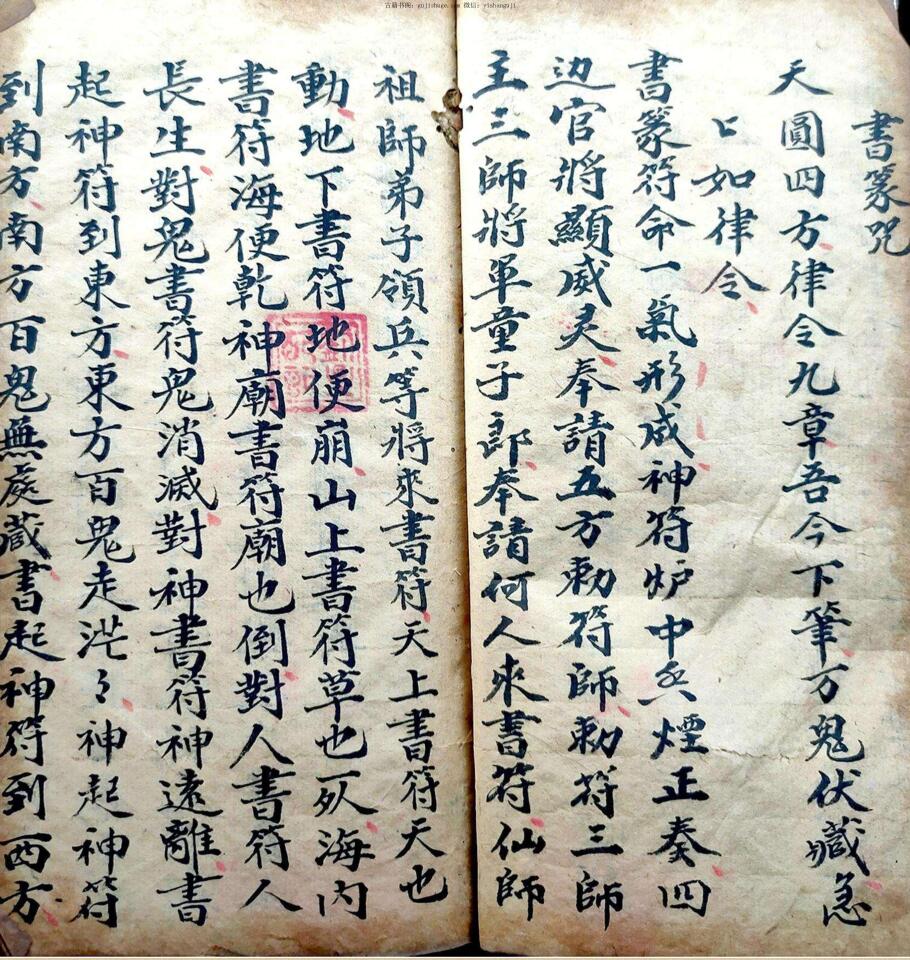 古籍书阁：gujishuge.com 微信：yishanguji
書篆咒
天圓四方律令九章吾今下筆万鬼伏藏急
〻如律令
書篆符命一氣形成神符炉中兵煙正奏四
边官將顯威灵奉請五方勅符師勅符三師
主三師將軍童子郎奉請何人來書符仙師
祖師弟子領兵等將來書符天上書符天也
動地下書符地便崩山上書符草也死海內
書符海便乾神廟書符廟也倒對人書符人
長生對鬼書符鬼消滅對神書符神遠離書
起神符到東方東方百鬼走茫〻神起神符
到南方南方百鬼無處藏書起神符到西方